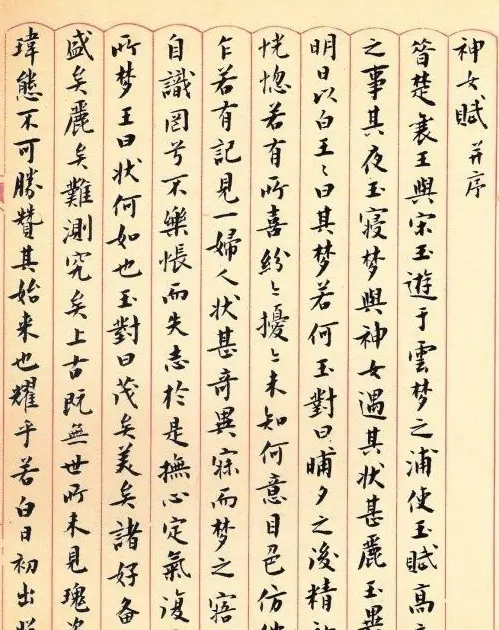 神女賦并序
昔楚襄王與宋玉遊于雲梦之浦使玉賦高
之事其夜玉寢梦與神女遇其状甚麗玉異
明日以白王〻曰其梦若何玉對曰晡夕之後精
恍惚若有所喜紛〻擾〻未知何意目色仿
乍若有記見一婦人状甚奇異寐而梦之寤
自識罔兮不樂悵而失志於是撫心定氣復
所梦王曰状何如也玉對曰茂矣美矣諸好备
盛矣麗矣難測究矣上古既無世所未見瑰
瑋態不可勝贊其始来也耀乎若白日初出